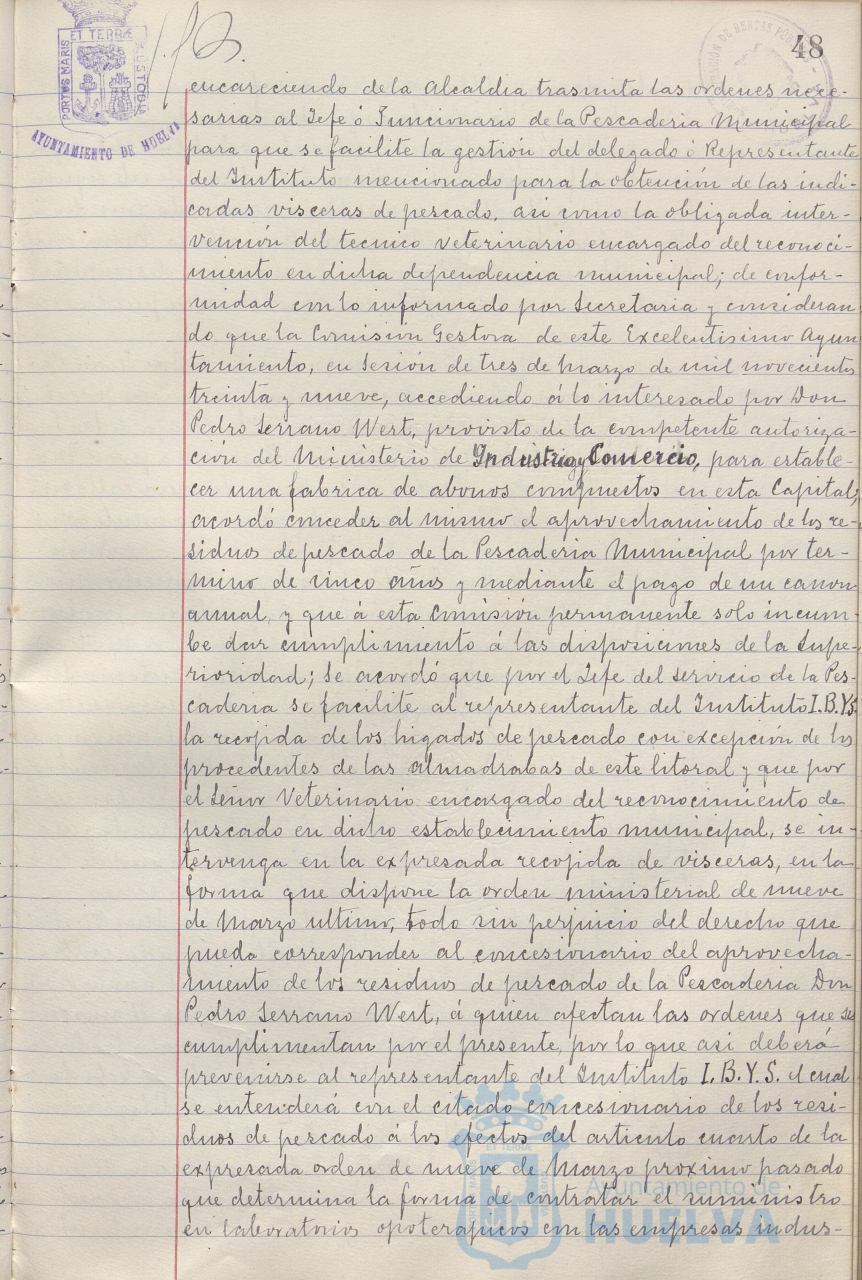 48
PORTUS MARIS ET TERRÆ CUSTODIA
AYUNTAMIENTO DE HUELVA
encareciendo de la Alcaldia trasmita las ordenes nece-
sarias al Jefe ó Funcionario de la Pescaderia Municipal
para que se facilite la gestión del delegado ó Representante
del Instituto mencionado para la obtención de las indi-
cadas visceras de pescado, asi como la obligada inter-
vención del tecnico Veterinario encargado del reconoci-
miento en dicha dependencia municipal; de confor-
midad con lo informado por Secretaria y consideran
do que la Comisión Gestora de este Excelentisimo Ayun
tamiento, en sesión de tres de Marzo de mil novecientos
treinta y nueve, accediendo á lo interesado por Don
Pedro Serrano West, provisto de la competente autoriza-
ción del Ministerio de Industria y Comercio, para estable-
cer una fabrica de abonos compuestos en esta Capital;
acordó conceder al mismo el aprovechamiento de los re-
siduos de pescado de la Pescaderia Municipal por ter-
mino de cinco años y mediante el pago de un canon
anual, y que á esta Comisión permanente solo incum-
be dar cumplimiento á las disposiciones de la Supe-
rioridad; Se acordó que por el Jefe del Servicio de la Pes-
caderia se facilite al representante del Instituto I.B.Y.S.
la recojida de los higados de pescado con excepción de los
procedentes de las almadrabas de este litoral y que por
el Señor Veterinario encargado del reconocimiento de
pescado en dicho establecimiento municipal, se in-
tervenga en la expresada recojida de visceras, en la
forma que dispone la orden ministerial de nueve
de Marzo ultimo, todo sin perjuicio del derecho que
pueda corresponder al concesionario del aprovecha-
miento de los residuos de pescado de la Pescaderia Don
Pedro Serrano West, á quien afectan las ordenes que se
cumplimentan por el presente, por lo que asi deberá
prevenirse al representante del Instituto I.B.Y.S. el cual
se entenderá con el citado concesionario de los resi-
duos de pescado á los efectos del articulo cuarto de la
expresada orden de nueve de Marzo proximo pasado
que determina la forma de contratar el suministro
en laboratorios opoterapicos con las empresas indus-
Ayuntamiento de
HUELVA